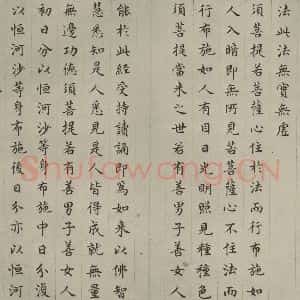 法此法無實無虛
須菩提若菩薩心住於法而行布施如
人入暗即無所見若菩薩心不住法而
行布施如人有目日光明照見種種色
須菩提當來之世若有善男子善女人
能於此經受持讀誦即為如來以佛智
慧悉知是人悉見是人皆得成就無量
無邊功德須菩提若有善男子善女人
初日分以恒河沙等身布施中日分復
以恒河沙等身布施後日分亦以恒河
Shufawang.CN